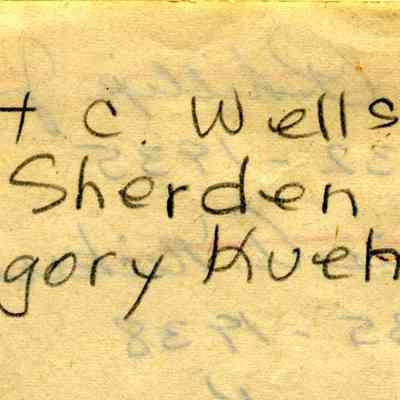 t C. Wells
Sherden
gory Kueh